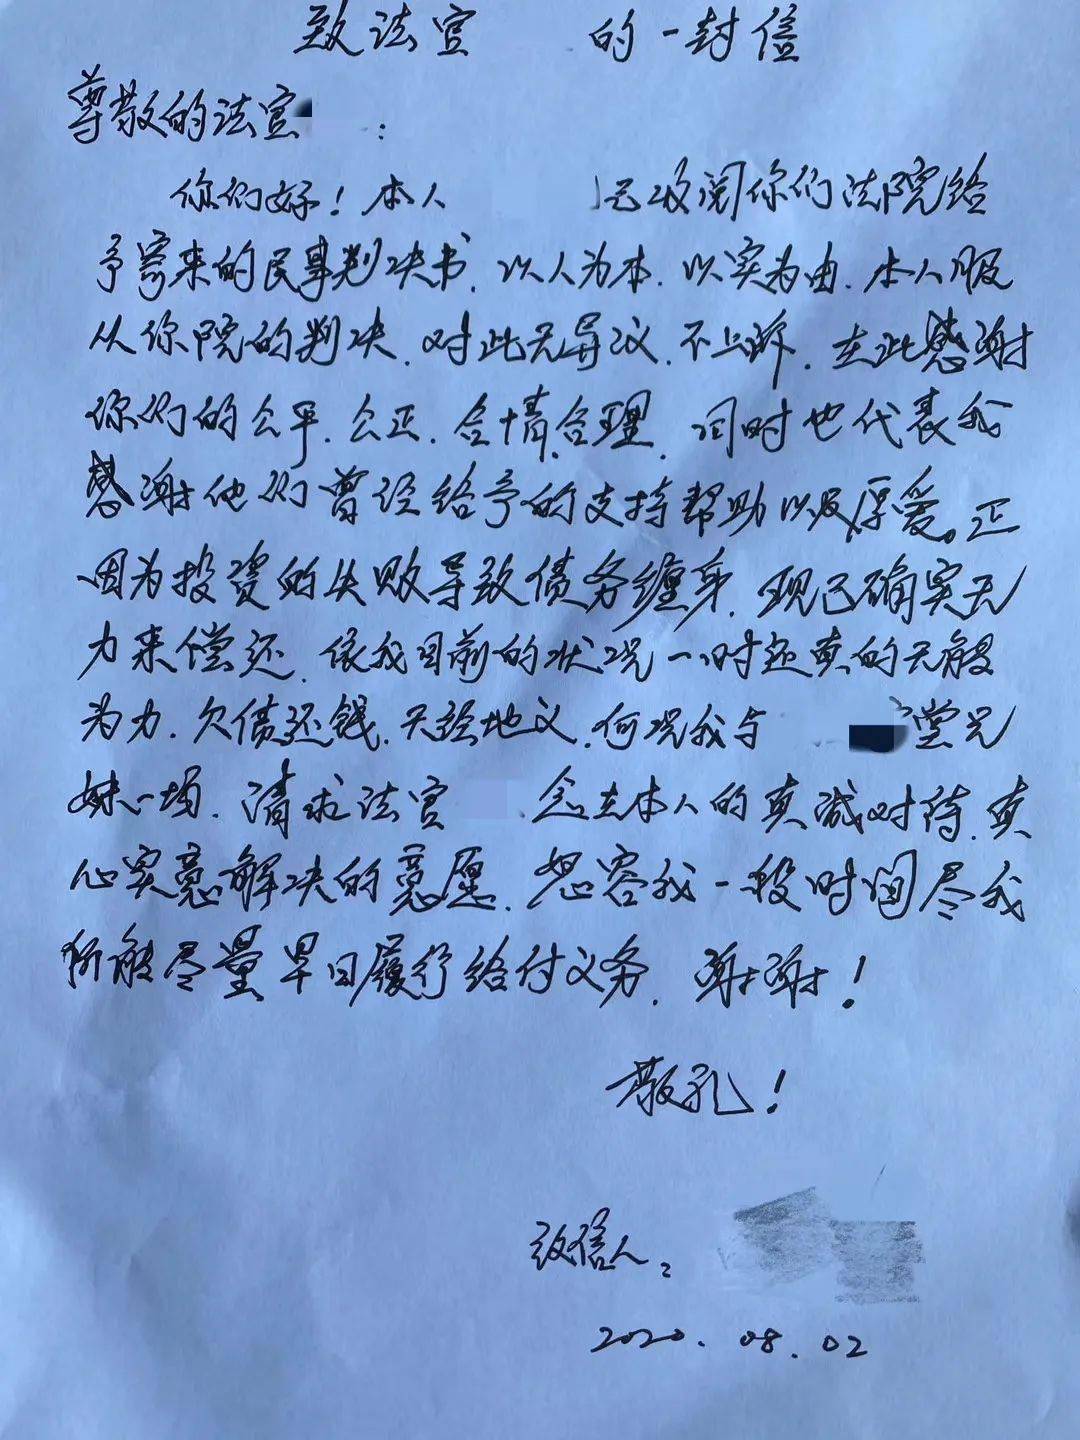 致法官 的一封信
尊敬的法官 :
你们好！本人 已收阅你们法院给
予寄来的民事判决书，以人为本，以实为由，本人服
从你院的判决，对此无异议，不上诉，在此感谢
你们的公平、公正、合情合理，同时也代表我
感谢他们曾经给予的支持帮助以及厚爱。正
因为投资的失败导致债务缠身，现已确实无
力来偿还，依我目前的状况一时还真的无能
为力，欠债还钱，天经地义，何况我与 堂兄
妹一场，请求法官 念在本人的真诚对待，真
心实意解决的意愿，恕容我一段时间尽我
所能尽量早日履行给付义务，谢谢！
敬礼！
致信人：
2020.08.02